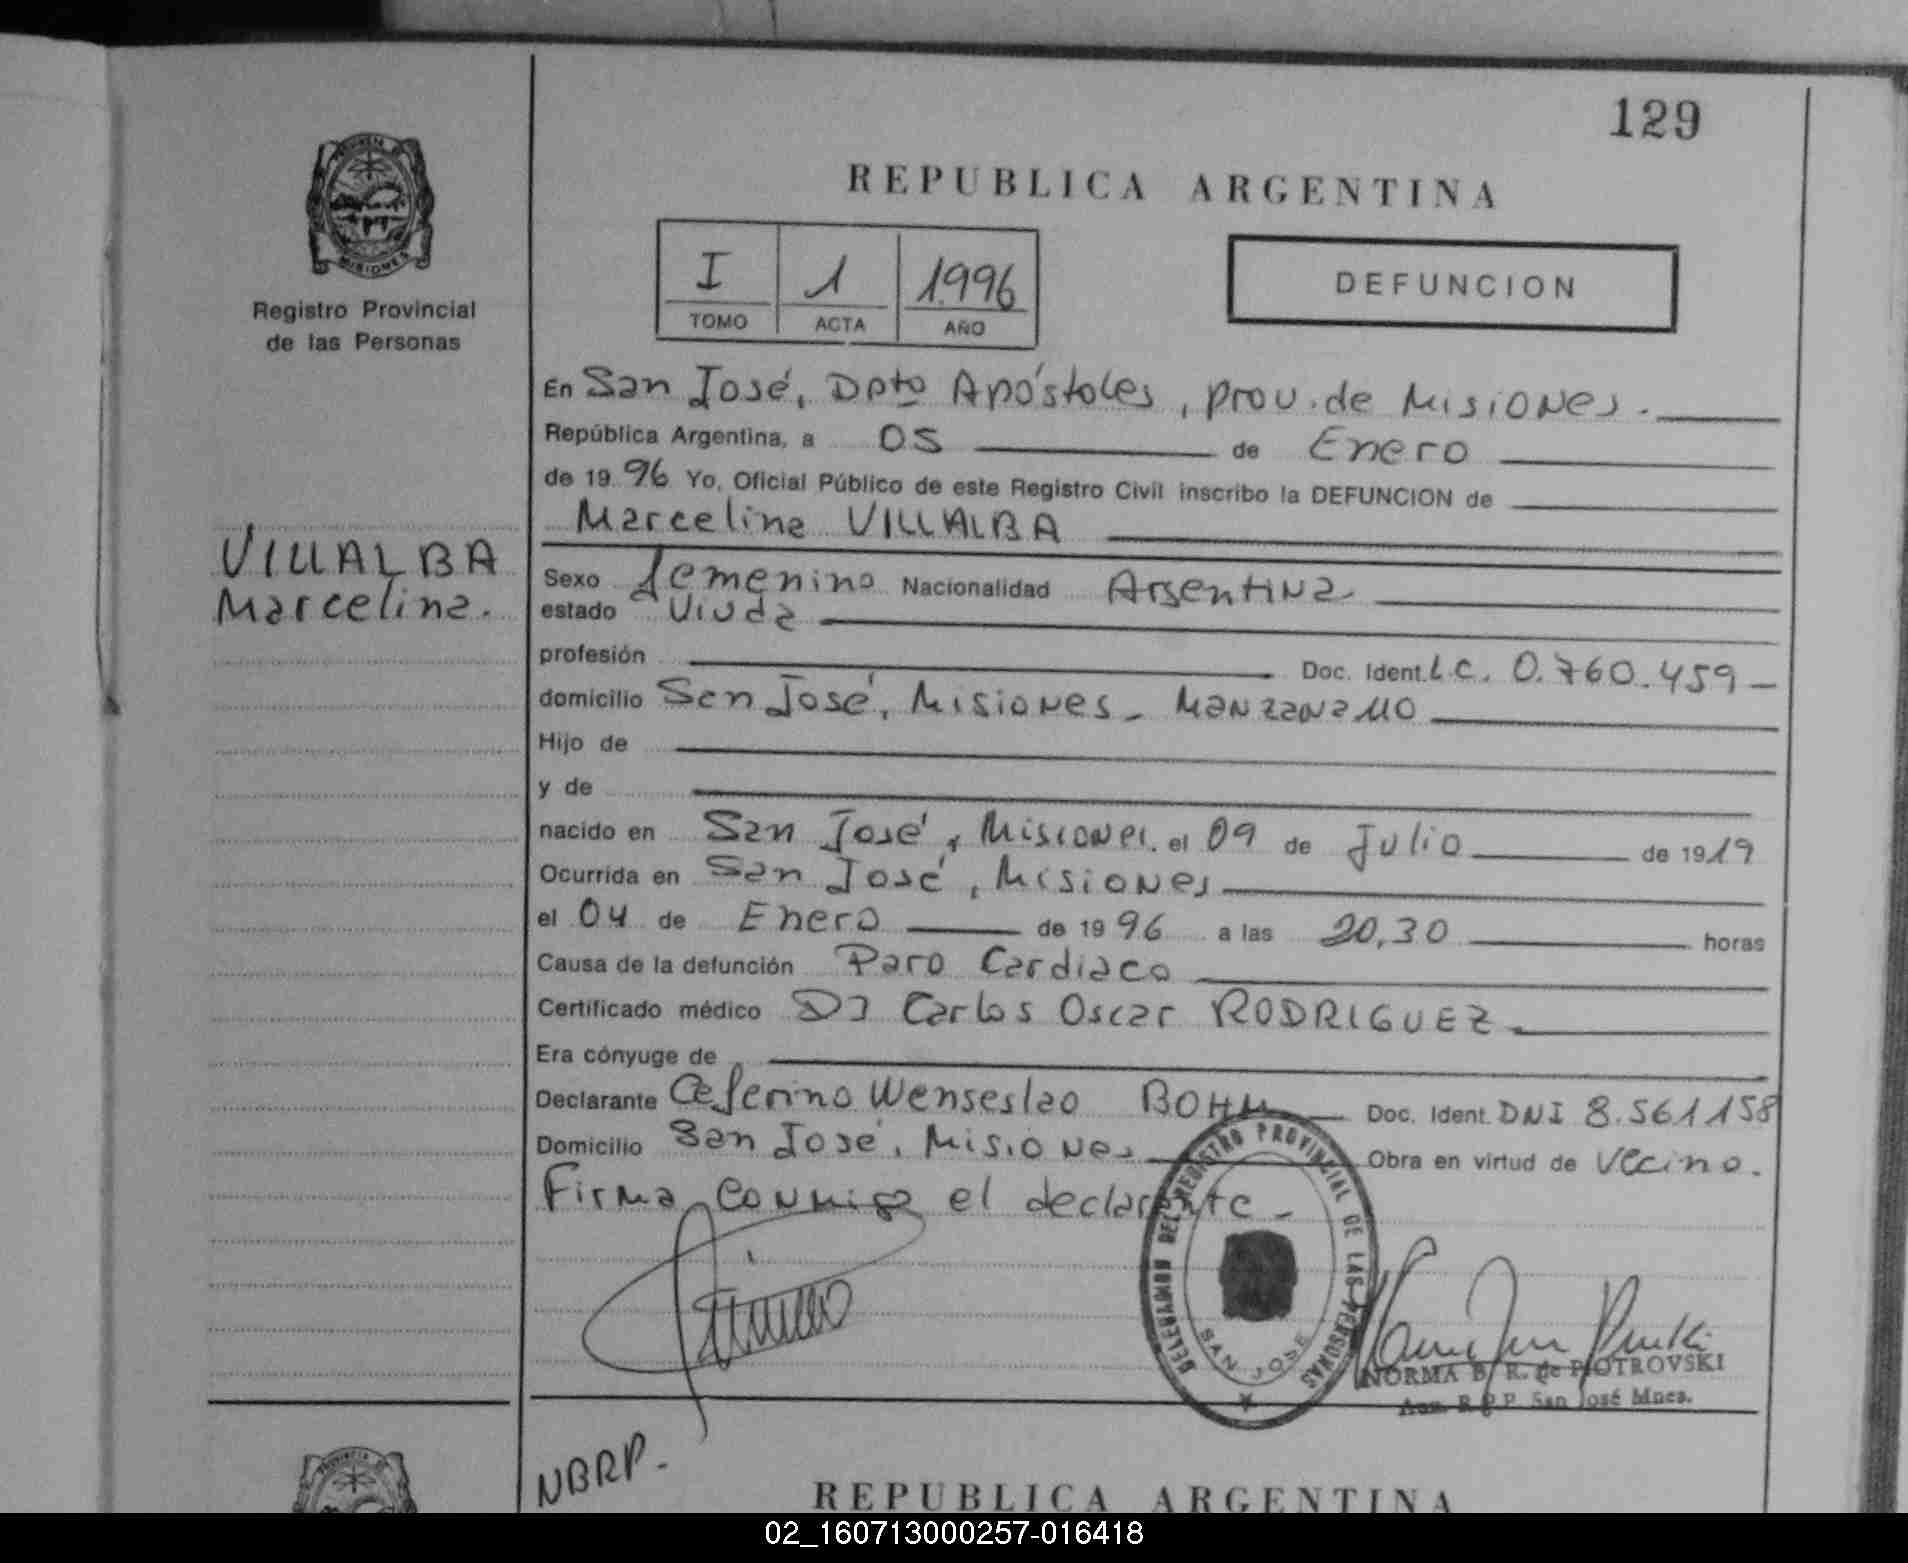 129
REPUBLICA ARGENTINA
PROVINCIA DE MISIONES
Registro Provincial
de las Personas
I 1 1996
TOMO ACTA AÑO
DEFUNCION
En San José, Dpto Apóstoles, prov. de Misiones.
República Argentina, a 05 de Enero
de 1996 Yo, Oficial Público de este Registro Civil inscribo la DEFUNCION de
Marcelina VILLALBA
VILLALBA
Marcelina.
Sexo femenino Nacionalidad Argentina
estado Viuda
profesión Doc. Ident. L.C. 0.760.459
domicilio San José, Misiones - Manzana 110
Hijo de
y de
nacido en San José, Misiones. el 09 de Julio de 1919
Ocurrida en San José, Misiones
el 04 de Enero de 1996 a las 20,30 horas
Causa de la defunción Paro Cardiaco
Certificado médico Dr Carlos Oscar RODRIGUEZ
Era cónyuge de
Declarante Ceferino Wenseslao BOHM Doc. Ident. DNI 8.561158
Domicilio San José, Misiones Obra en virtud de Vecino.
Firma conmigo el declarante -
DELEGACION DEL REGISTRO PROVINCIAL DE LAS PERSONAS
SAN JOSE
NORMA B. R. de PIOTROVSKI
R.P.P. San José Mnes.
NBRP.
PROVINCIA DE
REPUBLICA ARGENTINA
02_160713000257-016418